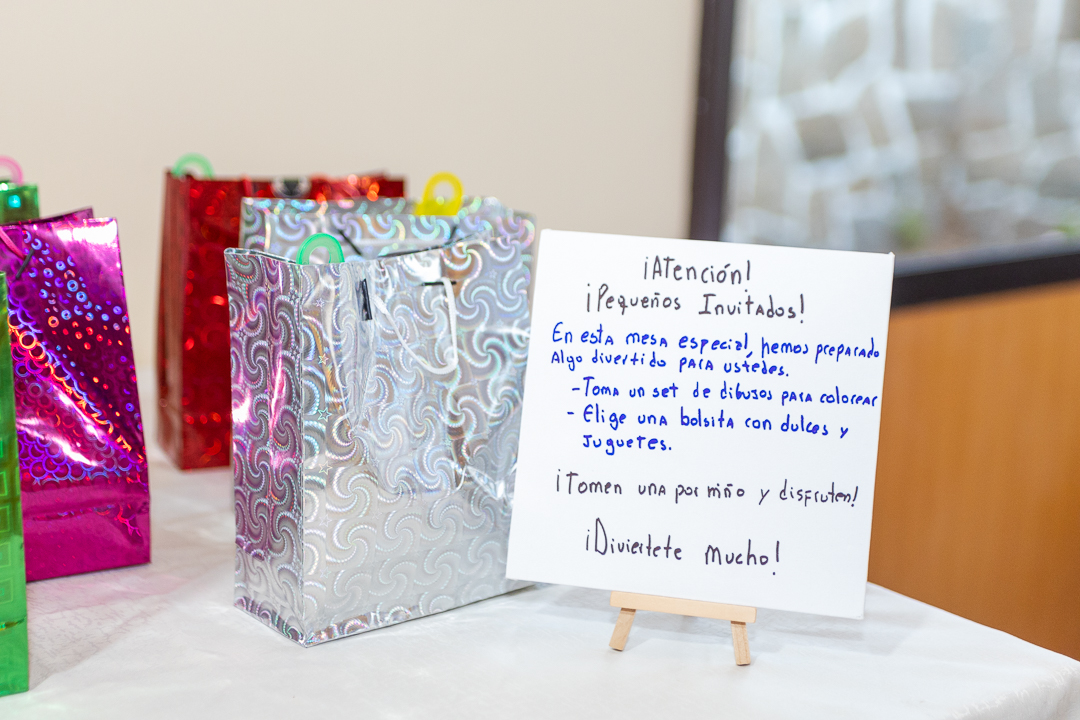 ¡Atención!
¡Pequeños Invitados!
En esta mesa especial, hemos preparado
Algo divertido para ustedes.
- Toma un set de dibujos para colorear
- Elige una bolsita con dulces y
juguetes.
¡Tomen una por niño y disfruten!
¡Diviertete Mucho!